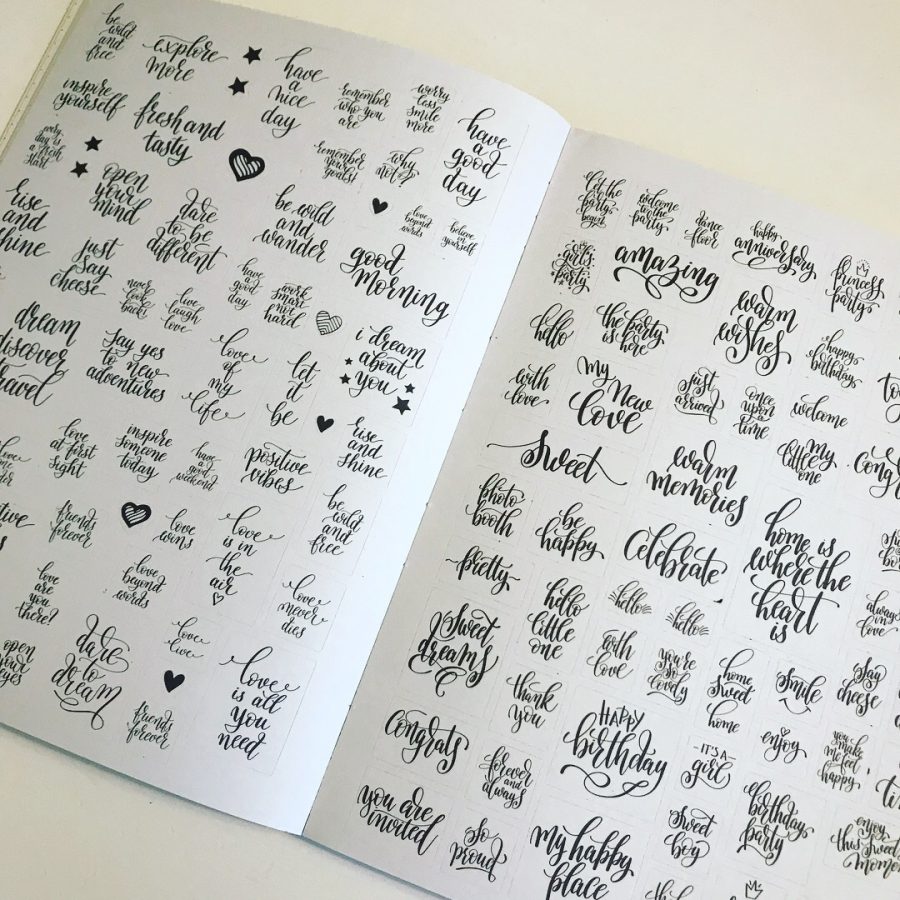 be
wild
and
free
explore
more
have
a
nice
day
remember
who you
are
worry
less
smile
more
have
a
good
day
inspire
yourself
fresh and
tasty
remember
your
goals!
why
not?
every
day is
a fresh
start
open
your
mind
dare
to be
different
be wild
and
wander
love
beyond
words
believe
in
yourself
rise
and
shine
just
say
cheese
never
look
back!
live
laugh
love
have
a
good
day
work
smart
not
hard
good
Morning
dream
discover
travel
say yes
to new
adventures
love
of
my
life
let
it
be
i dream
about
you
love
at first
sight
inspire
someone
today
have
a
good
weekend
positive
vibes
rise
and
shine
friends
forever
love
wins
love
is in
the
air
be
wild
and
free
love
are
you
there!
love
beyond
words
love
never
dies
open
your
eyes
dare
to
dream
love
live
friends
forever
love
is all
you
need
let the
party
begin
welcome
to the
party
dance
floor
happy
anniversary
princess
party
girls
party
amazing
warm
wishes
hello
the party
is here
happy
birthday
with
love
my
new
love
just
arrived
once
upon a
time
welcome
sweet
warm
memories
my
little
one
photo
booth
be
happy
celebrate
home is
where the
heart
is
always
in
love
pretty
hello
little
one
hello
hello
sweet
dreams
with
love
you're
so
lovely
home
sweet
home
smile
say
cheese
thank
you
congrats
HAPPY
birthday
IT'S A
girl
enjoy
you
make
me feel
happy
forever
and
always
you are
invited
so
proud
my happy
place
sweet
boy
birthday
party
enjoy
this sweet
moment